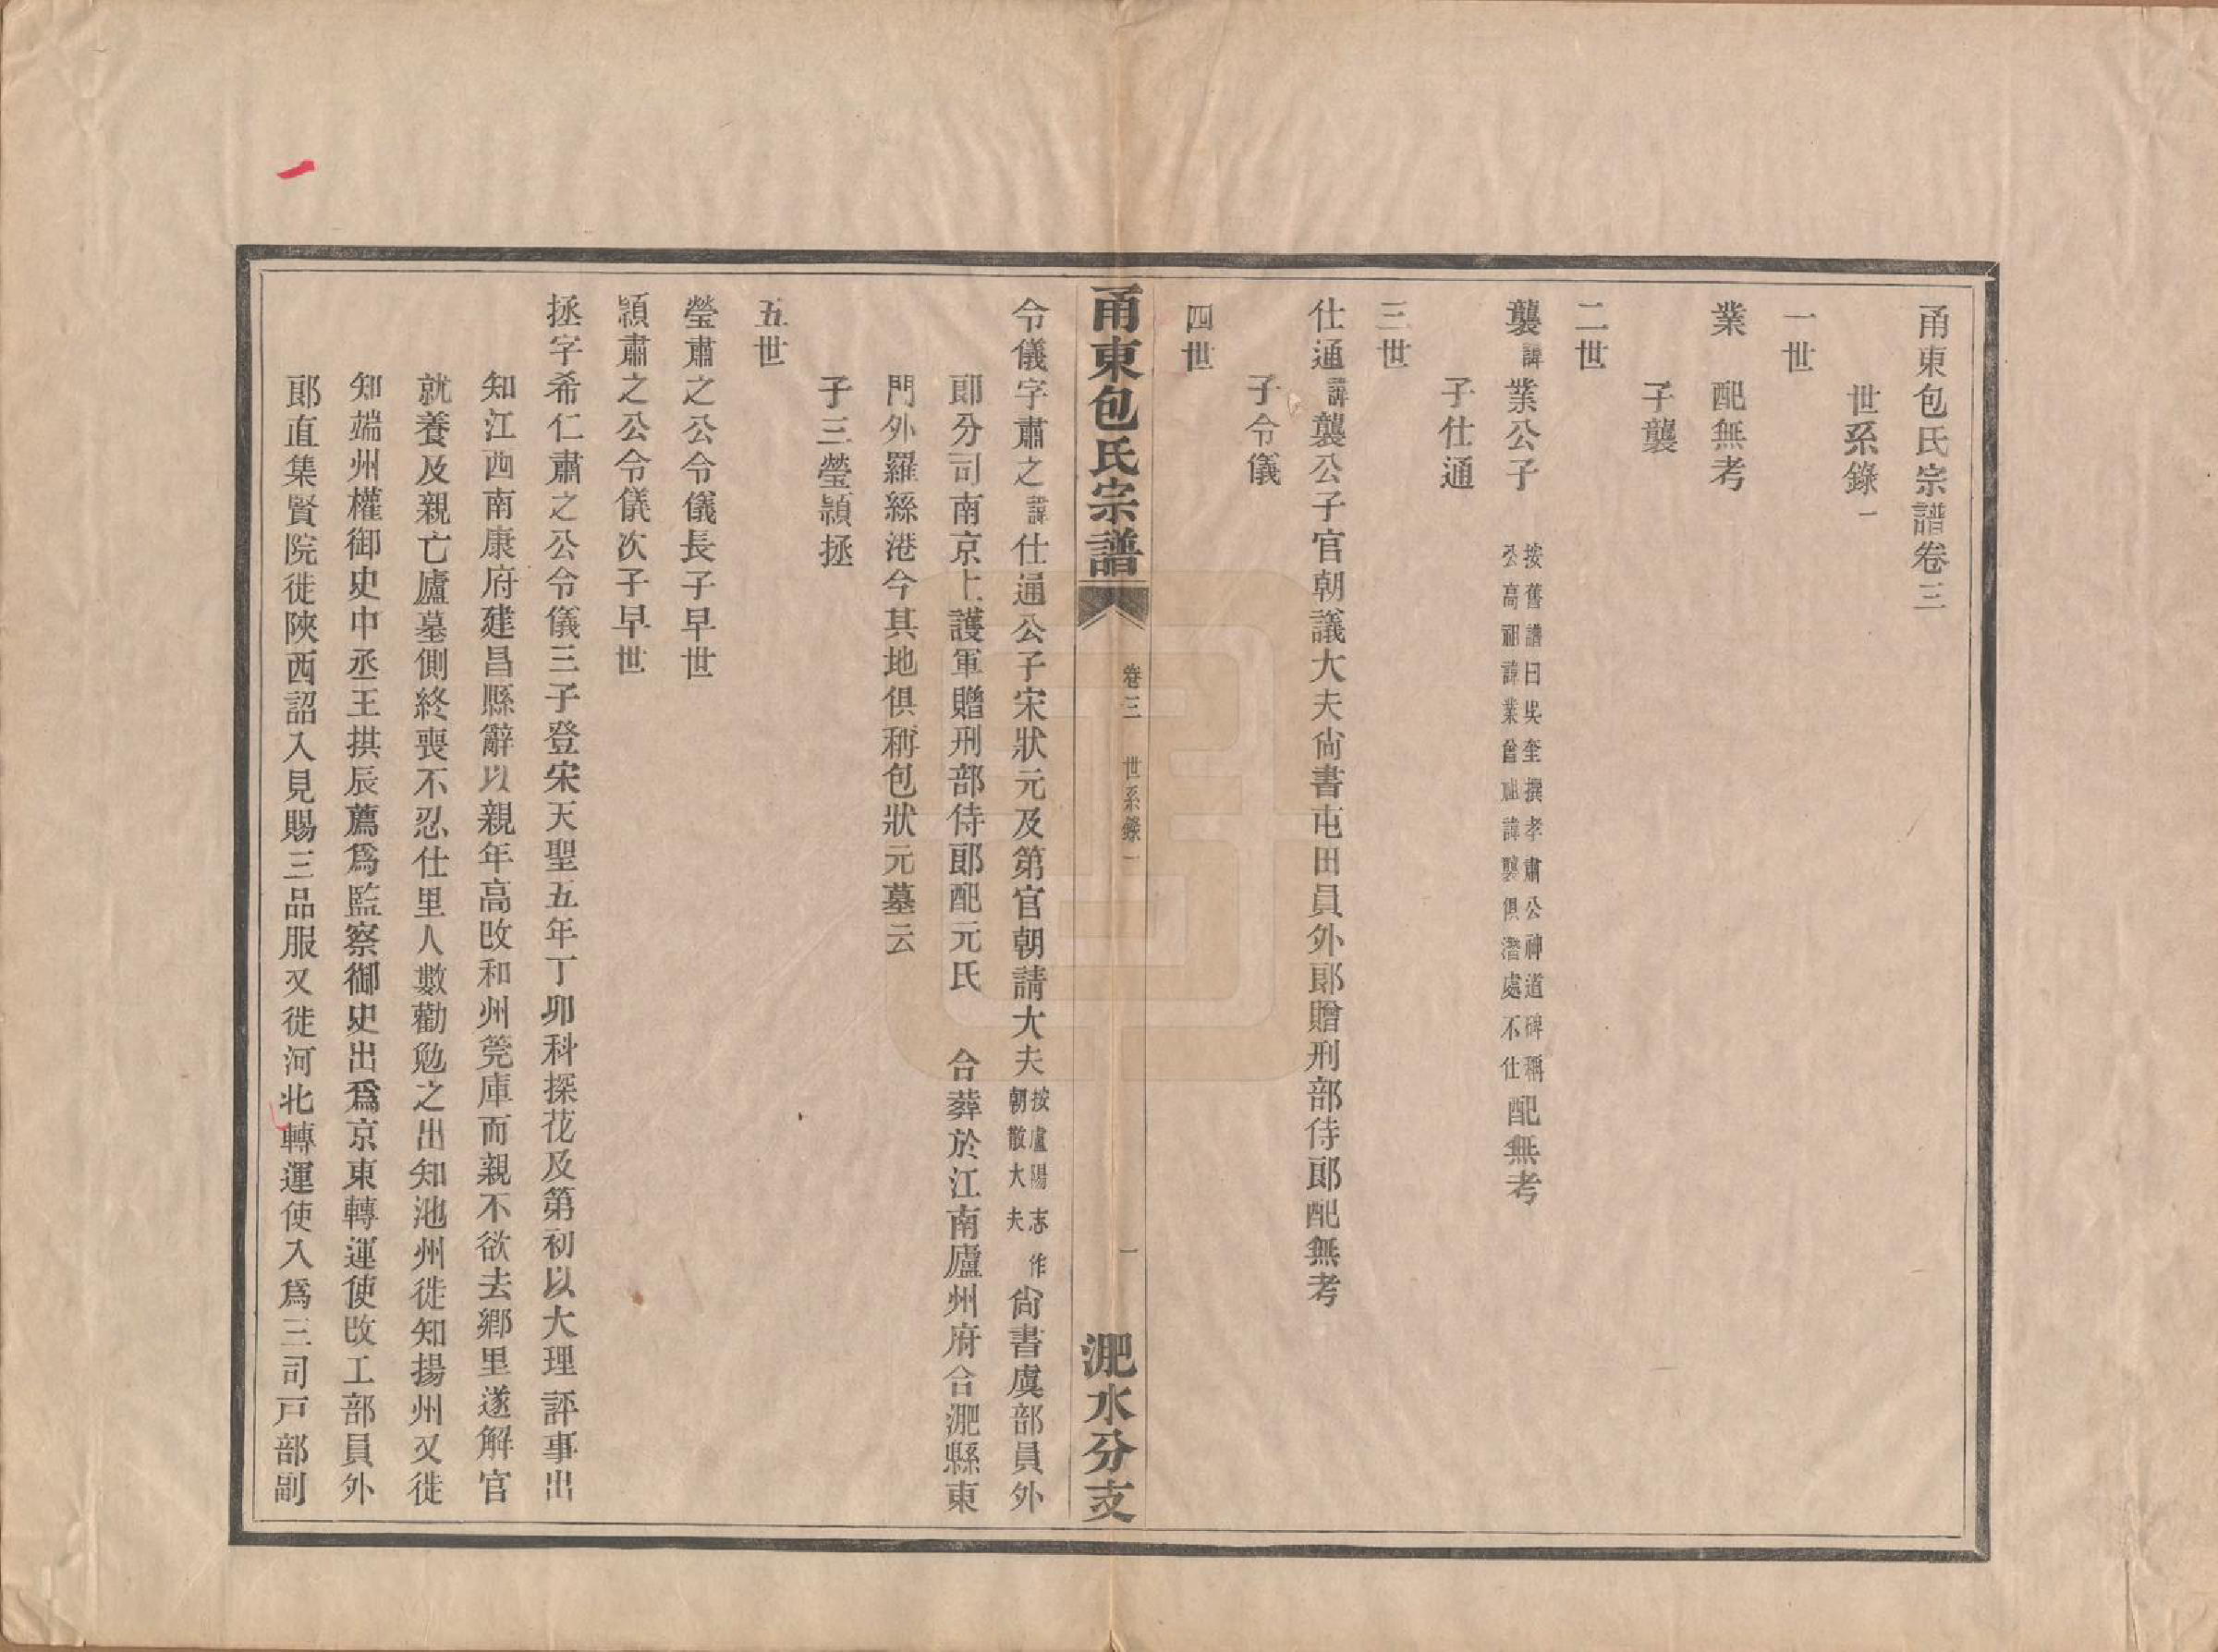 甬東包氏宗譜卷三
世系錄一
一世
業　配無考
子襲
二世
襲諱業公子　按舊譜曰吳奎撰孝肅公神道碑稱公高祖諱業曾祖諱襲俱潛處不仕配無考
子仕通
三世
仕通諱襲公子官朝議大夫尙書屯田員外郎贈刑部侍郎配無考
子令儀
四世
甬東包氏宗譜　卷三　世系錄一　一　淝水分支
令儀字肅之諱仕通公子宋狀元及第官朝請大夫按廬陽志作朝散大夫尙書虞部員外
郎分司南京上護軍贈刑部侍郎配元氏　合葬於江南廬州府合淝縣東
門外羅絲港今其地俱稱包狀元墓云
子三瑩穎拯
五世
瑩肅之公令儀長子早世
穎肅之公令儀次子早世
拯字希仁肅之公令儀三子登宋天聖五年丁卯科探花及第初以大理評事出
知江西南康府建昌縣辭以親年高改和州筦庫而親不欲去鄉里遂解官
就養及親亡廬墓側終喪不忍仕里人數勸勉之出知池州徙知揚州又徙
知端州權御史中丞王拱辰薦爲監察御史出爲京東轉運使改工部員外
郎直集賢院徙陝西詔入見賜三品服又徙河北轉運使入爲三司戸部副